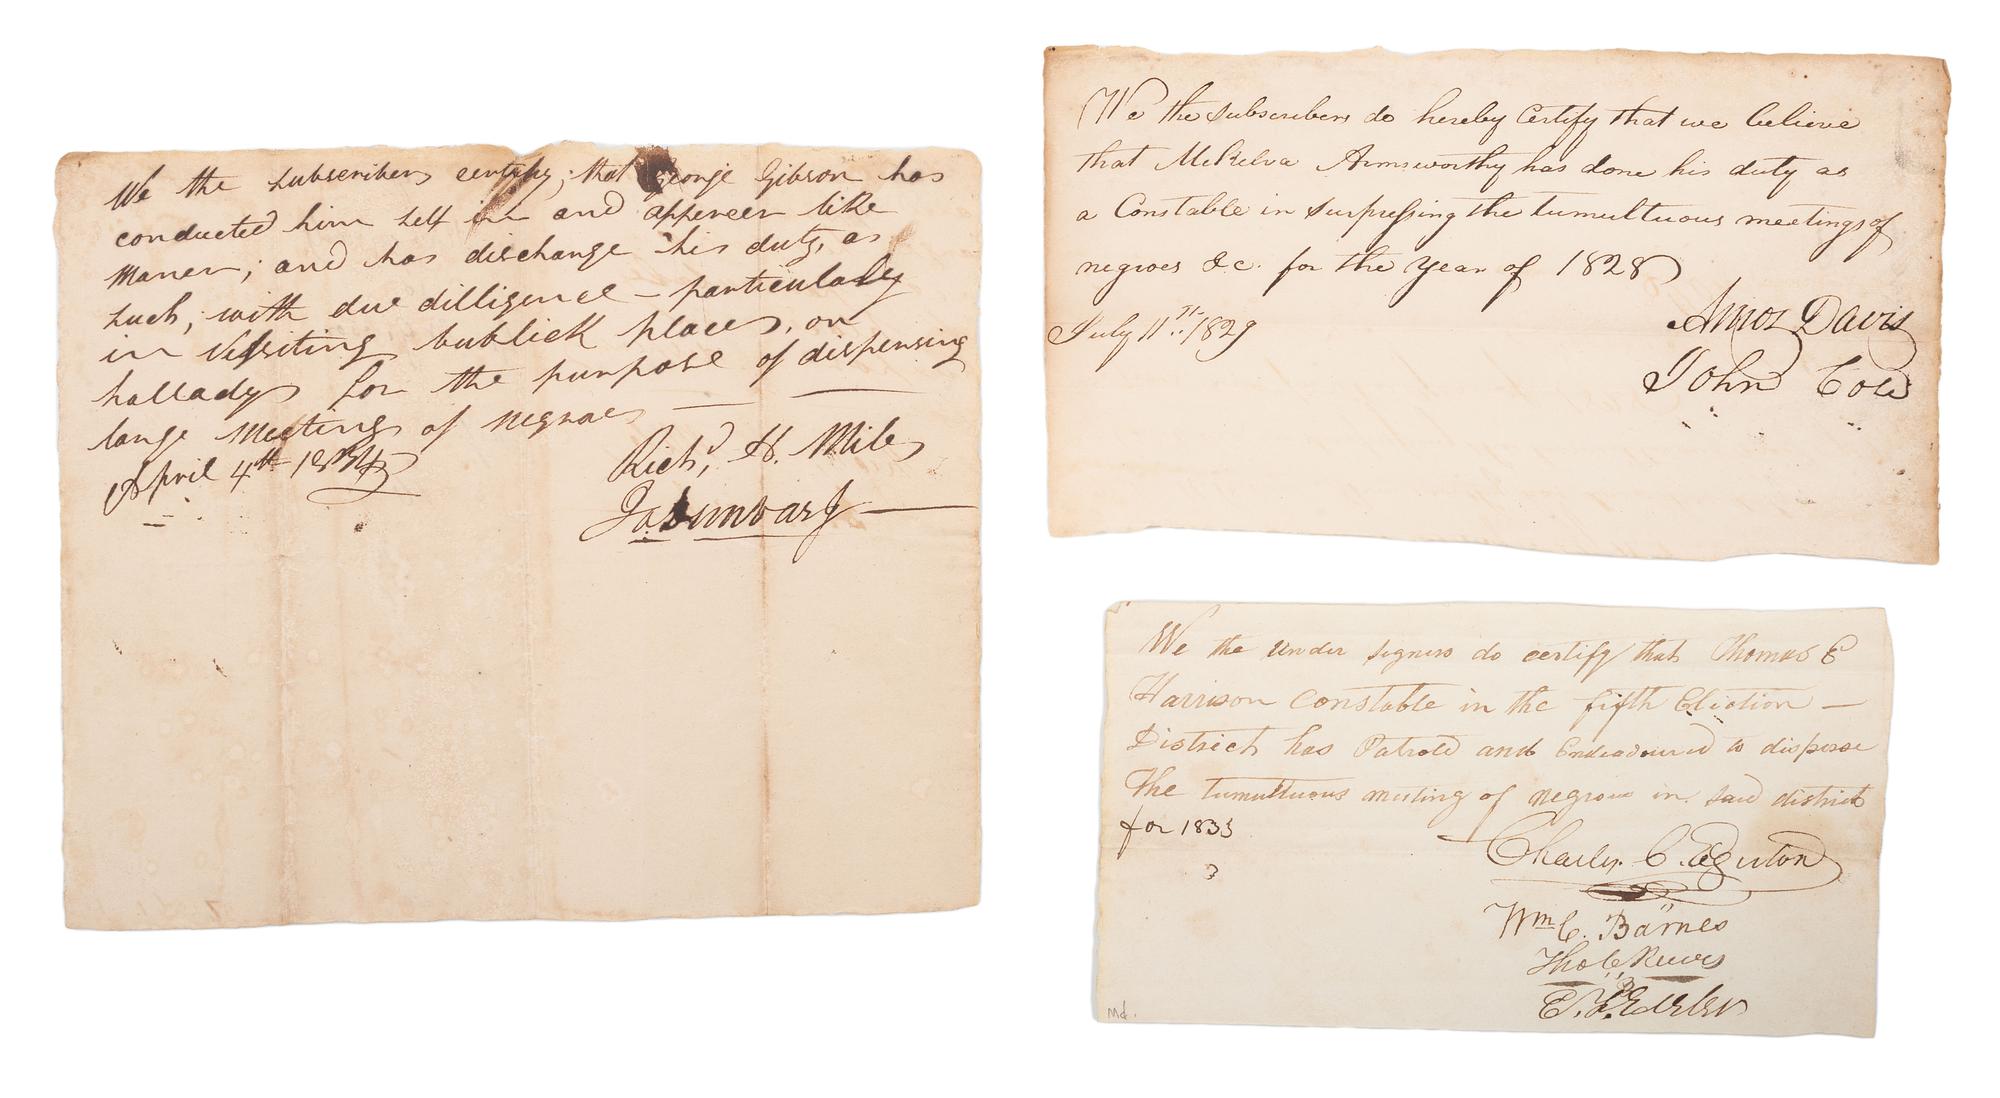 We the subscribers certify; that George Gibson has
conducted him self in and appeneer like
maner; and has dischange his duty, as
such, with due dilligence – particulaly
in visiting bublick places, on
halladys for the purpose of dispensing
lange meetings of negroes
April 4th 1834
Richd, H. Miles
We the subscribers do hereby Certify that we believe
that McKelva Armsworthy has done his duty as
a Constable in surpressing the tumultuous meetings of
negroes &c. for the year of 1828
July 11th 1829
Amos Davis
John Cole
We the under signers do certify that Thomas E
Harrison Constable in the fifth Eliction –
District has Patrold and Endeavoured to disperse
the tumultuous meeting of negroes in said district
for 1833
3
Charles C. Egerton
Wm C. Barnes
Tho C Reeves
Md.